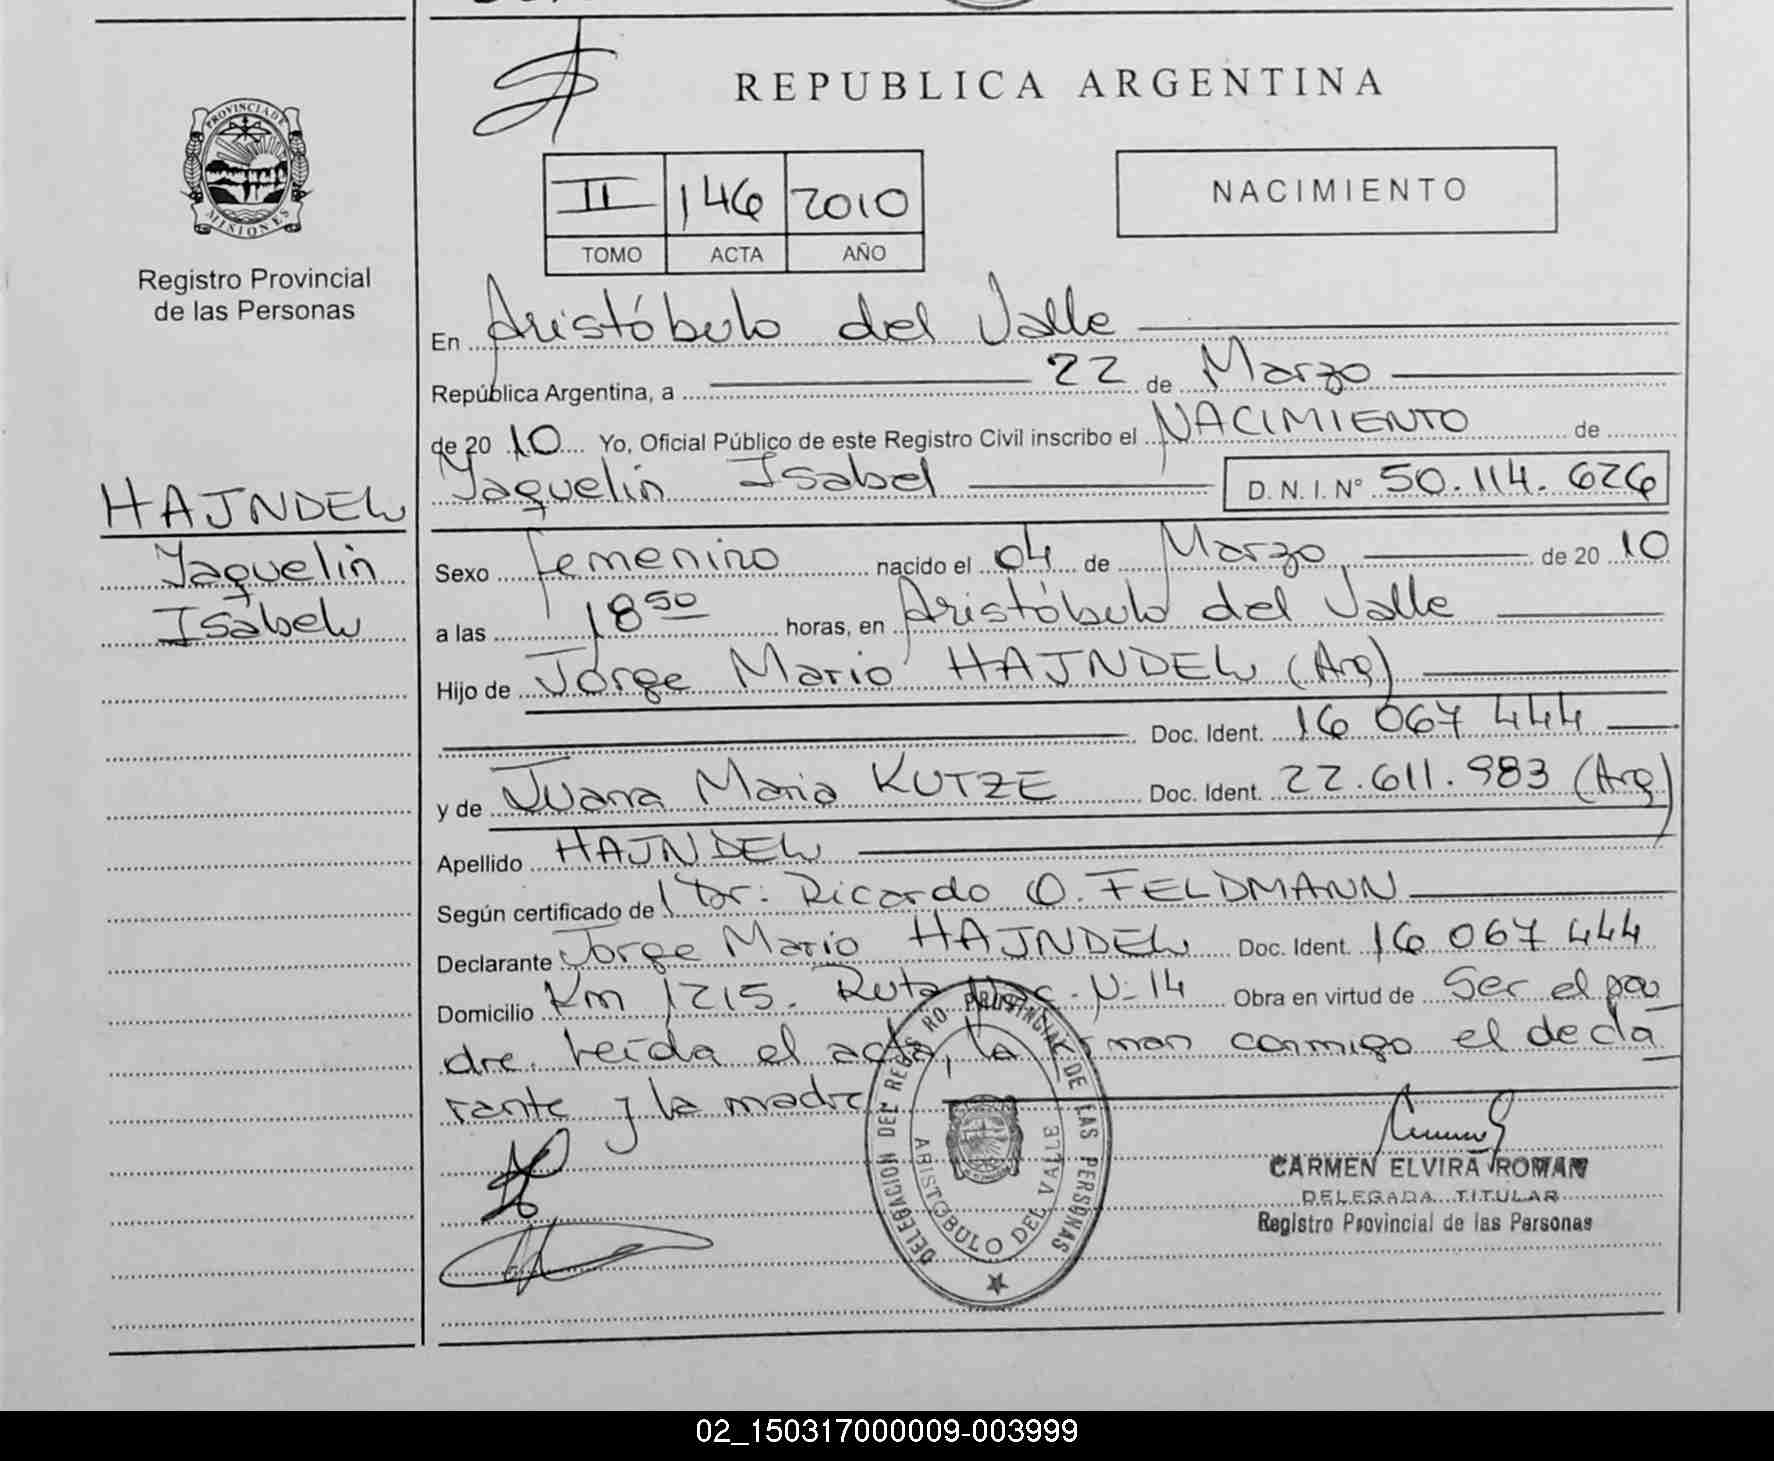 REPUBLICA ARGENTINA
PROVINCIA DE MISIONES
Registro Provincial
de las Personas
II 146 2010
TOMO ACTA AÑO
NACIMIENTO
En Aristóbulo del Valle
República Argentina, a 22 de Marzo
de 2010 Yo, Oficial Público de este Registro Civil inscribo el NACIMIENTO de
Yaquelin Isabel D. N. I. N° 50.114.626
HAJNDEL
Yaquelin
Isabel
Sexo femenino nacido el 04 de Marzo de 2010
a las 18 50 horas, en Aristóbulo del Valle
Hijo de Jorge Mario HAJNDEL (Arg)
Doc. Ident. 16 067 444
y de Juana Maria KUTZE Doc. Ident. 22.611.983 (Arg)
Apellido HAJNDEL
Según certificado de Dr: Ricardo O. FELDMANN
Declarante Jorge Mario HAJNDEL Doc. Ident. 16 067 444
Domicilio Km 1215. Ruta Nac. N: 14 Obra en virtud de Ser el pa
dre. Leída el acta, la firman conmigo el decla
rante y la madre
DELEGACION DEL REGISTRO PROVINCIAL DE LAS PERSONAS
ARISTOBULO DEL VALLE
CARMEN ELVIRA ROMAN
DELEGADA TITULAR
Registro Provincial de las Personas
02_150317000009-003999